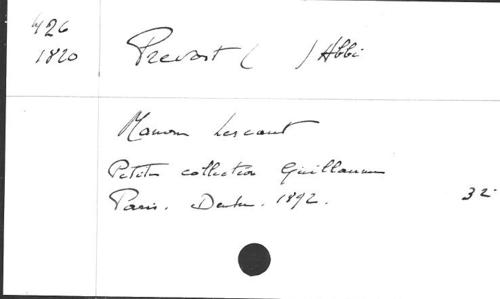 426
1820
Prevost ( ) Abbé
Manon Lescaut
Petite collection Guillaume
Paris. Dentu. 1892.
32